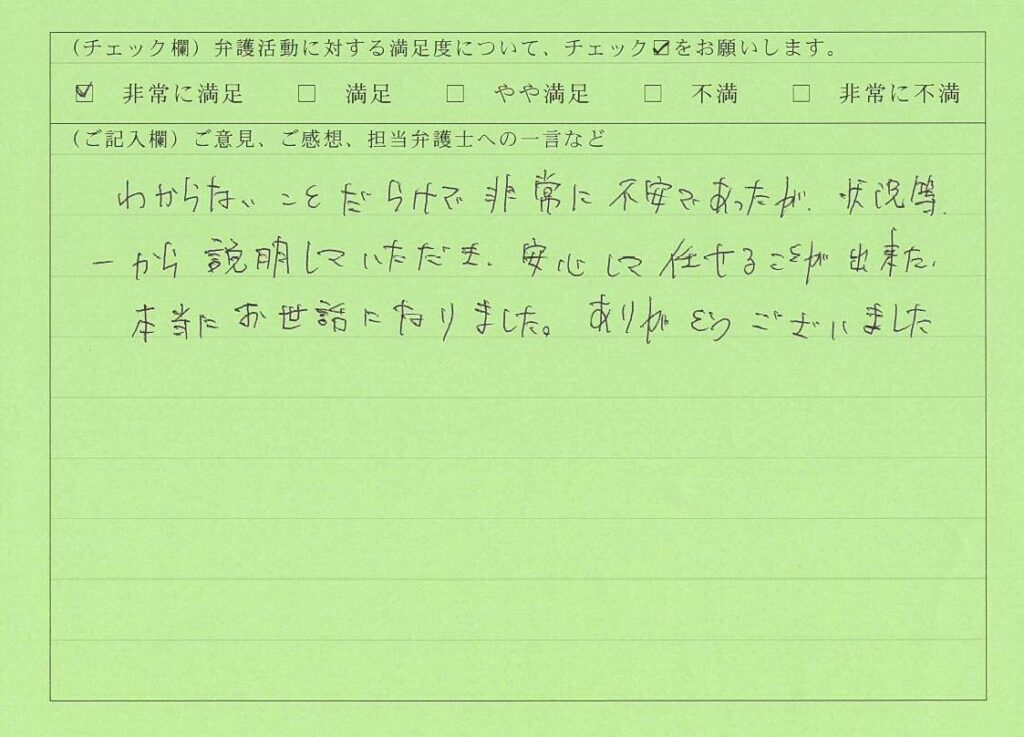 (チェック欄) 弁護活動に対する満足度について、チェック☑をお願いします。
☑ 非常に満足 □ 満足 □ やや満足 □ 不満 □ 非常に不満
(ご記入欄) ご意見、ご感想、担当弁護士への一言など
わからないことだらけで非常に不安であったが、状況等、
一から説明していただき、安心して任せることが出来た。
本当にお世話になりました。ありがとうございました